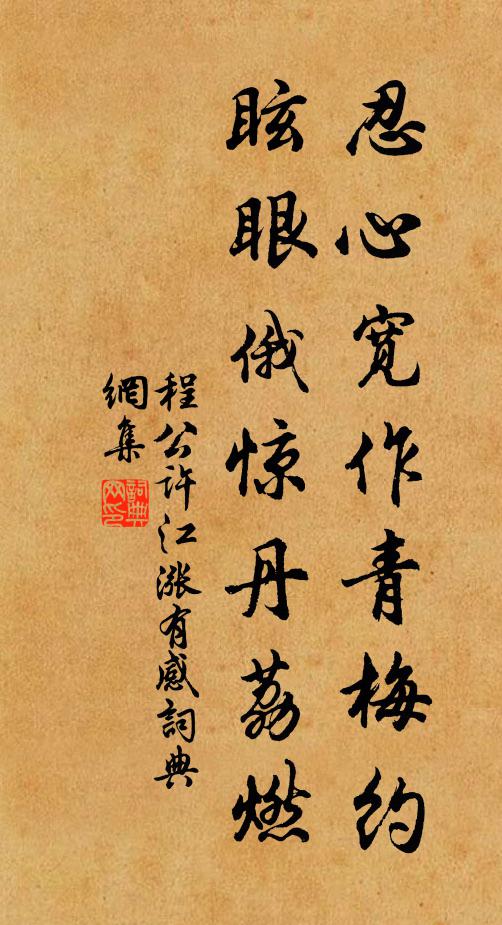 忍心寛作青梅约
眩眼俄惊丹荔燃
程公许江涨有感詞典
網集
詞典
网印